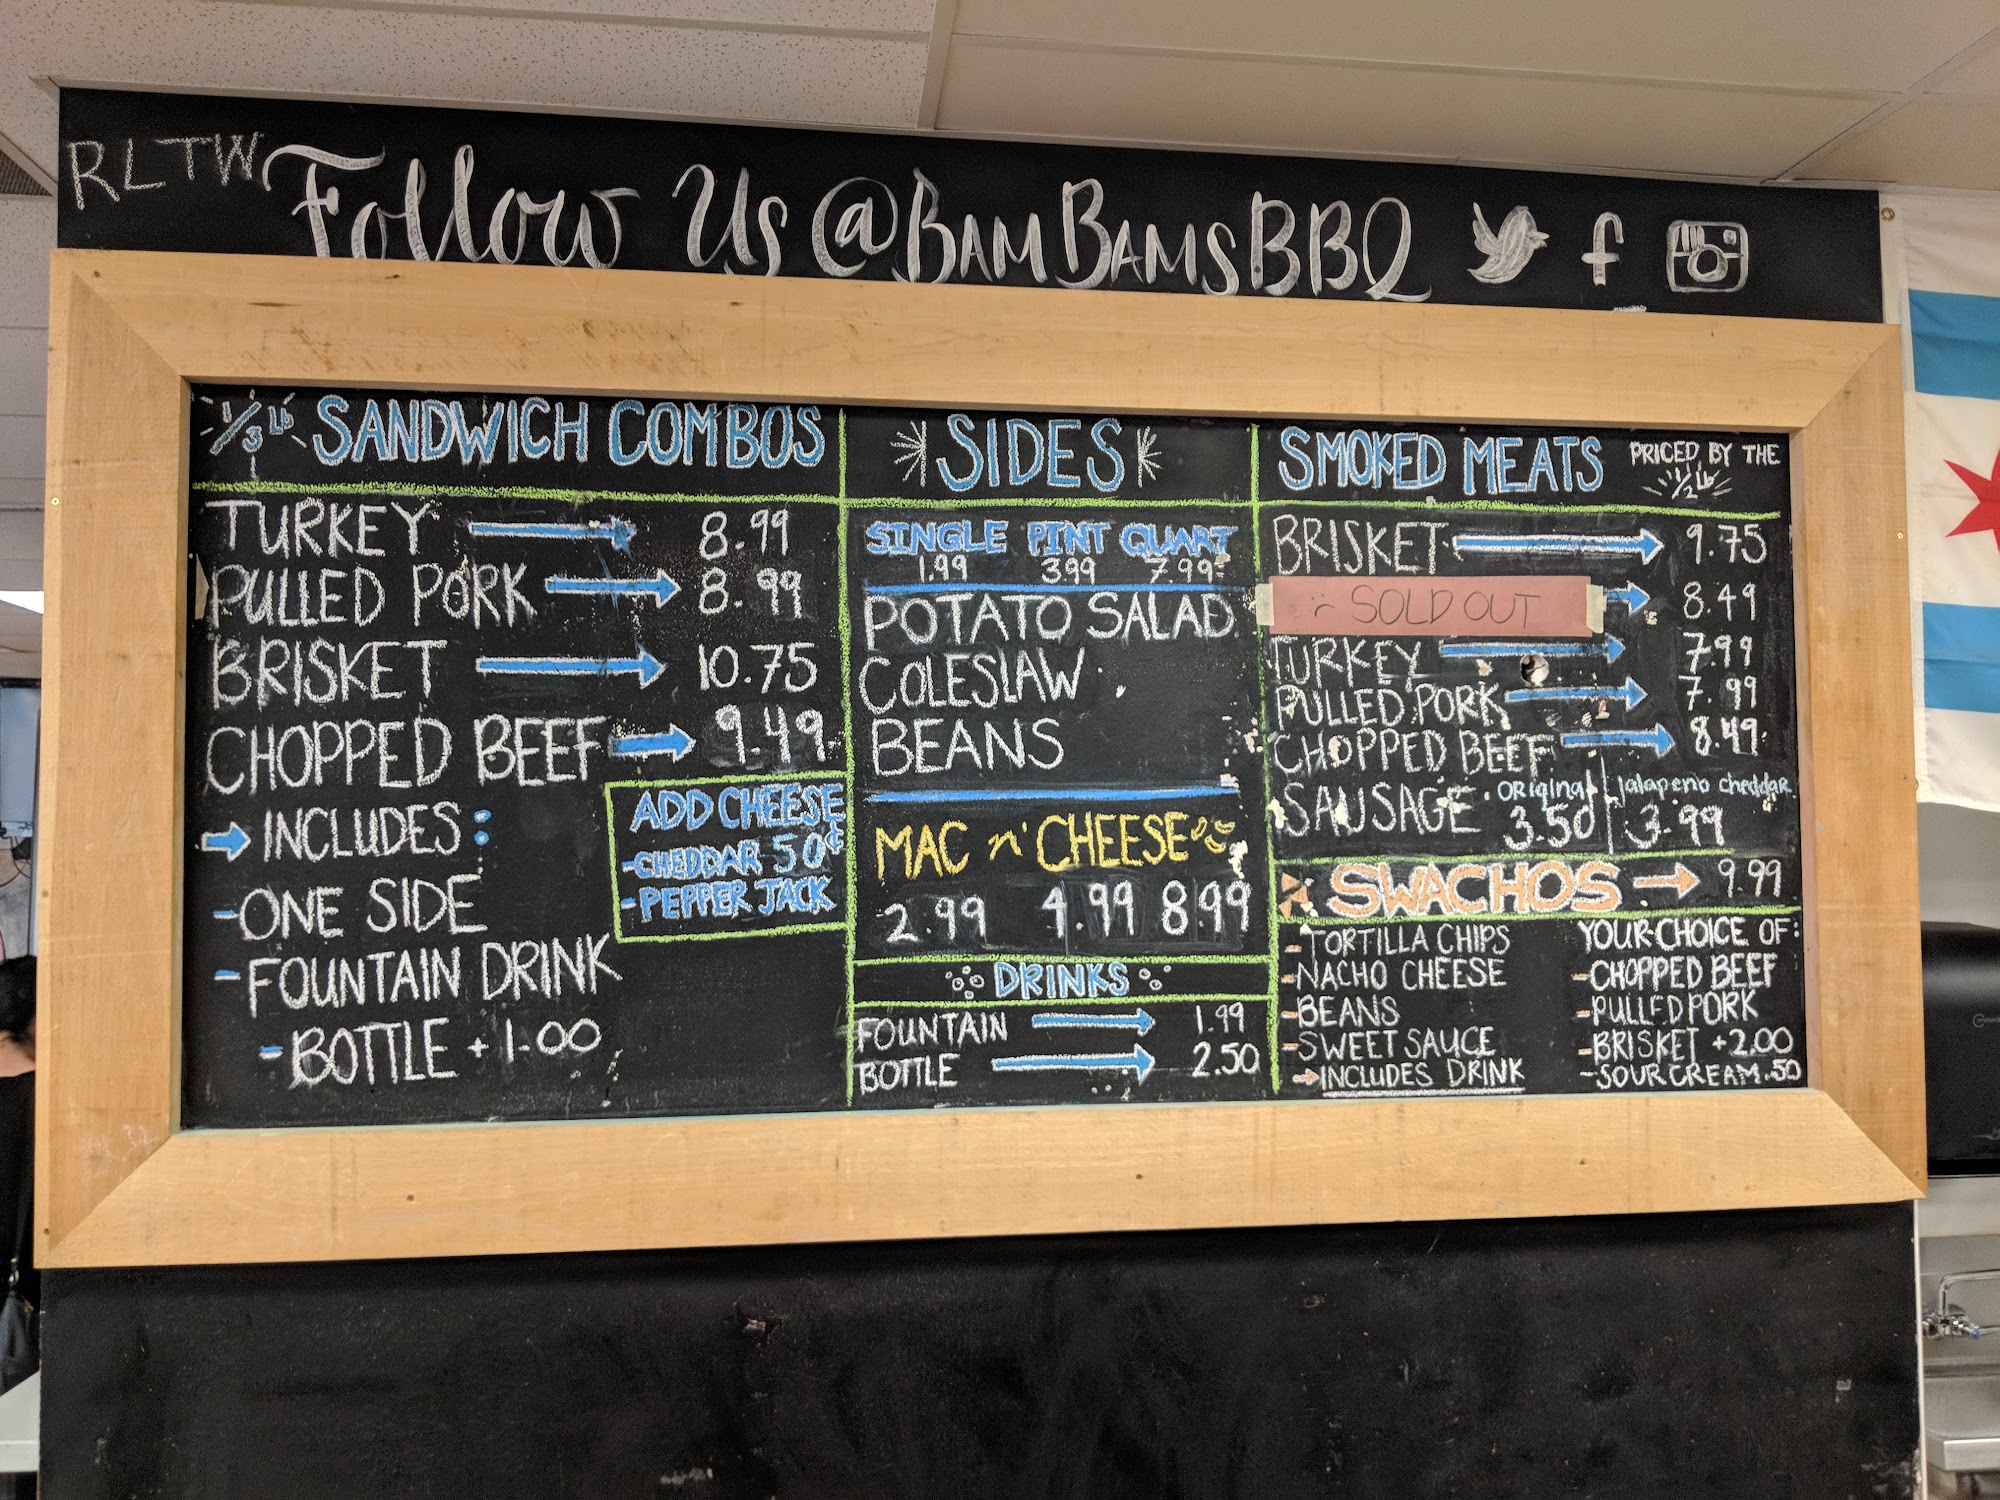 RLTW
Follow Us @BamBamsBBQ
1/3 lb SANDWICH COMBOS
TURKEY 8.99
PULLED PORK 8.99
BRISKET 10.75
CHOPPED BEEF 9.49
INCLUDES:
-ONE SIDE
-FOUNTAIN DRINK
-BOTTLE +1.00
ADD CHEESE
-CHEDDAR 50¢
-PEPPER JACK
SIDES
SINGLE PINT QUART
1.99 3.99 7.99
POTATO SALAD
COLESLAW
BEANS
MAC n' CHEESE
2.99 4.99 8.99
DRINKS
FOUNTAIN 1.99
BOTTLE 2.50
SMOKED MEATS PRICED BY THE
1/2 lb
BRISKET 9.75
SOLD OUT 8.49
TURKEY 7.99
PULLED PORK 7.99
CHOPPED BEEF 8.49
SAUSAGE original 3.50 jalapeno cheddar 3.99
SWACHOS 9.99
-TORTILLA CHIPS
-NACHO CHEESE
-BEANS
-SWEET SAUCE
INCLUDES DRINK
YOUR CHOICE OF:
-CHOPPED BEEF
-PULLED PORK
-BRISKET +2.00
-SOUR CREAM .50